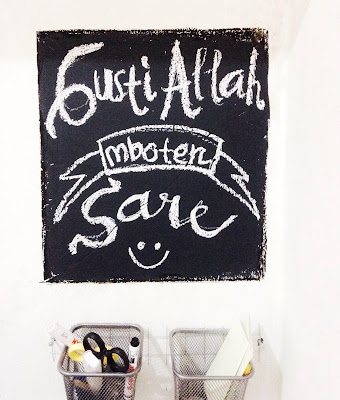 Gusti Allah
mboten
Sare